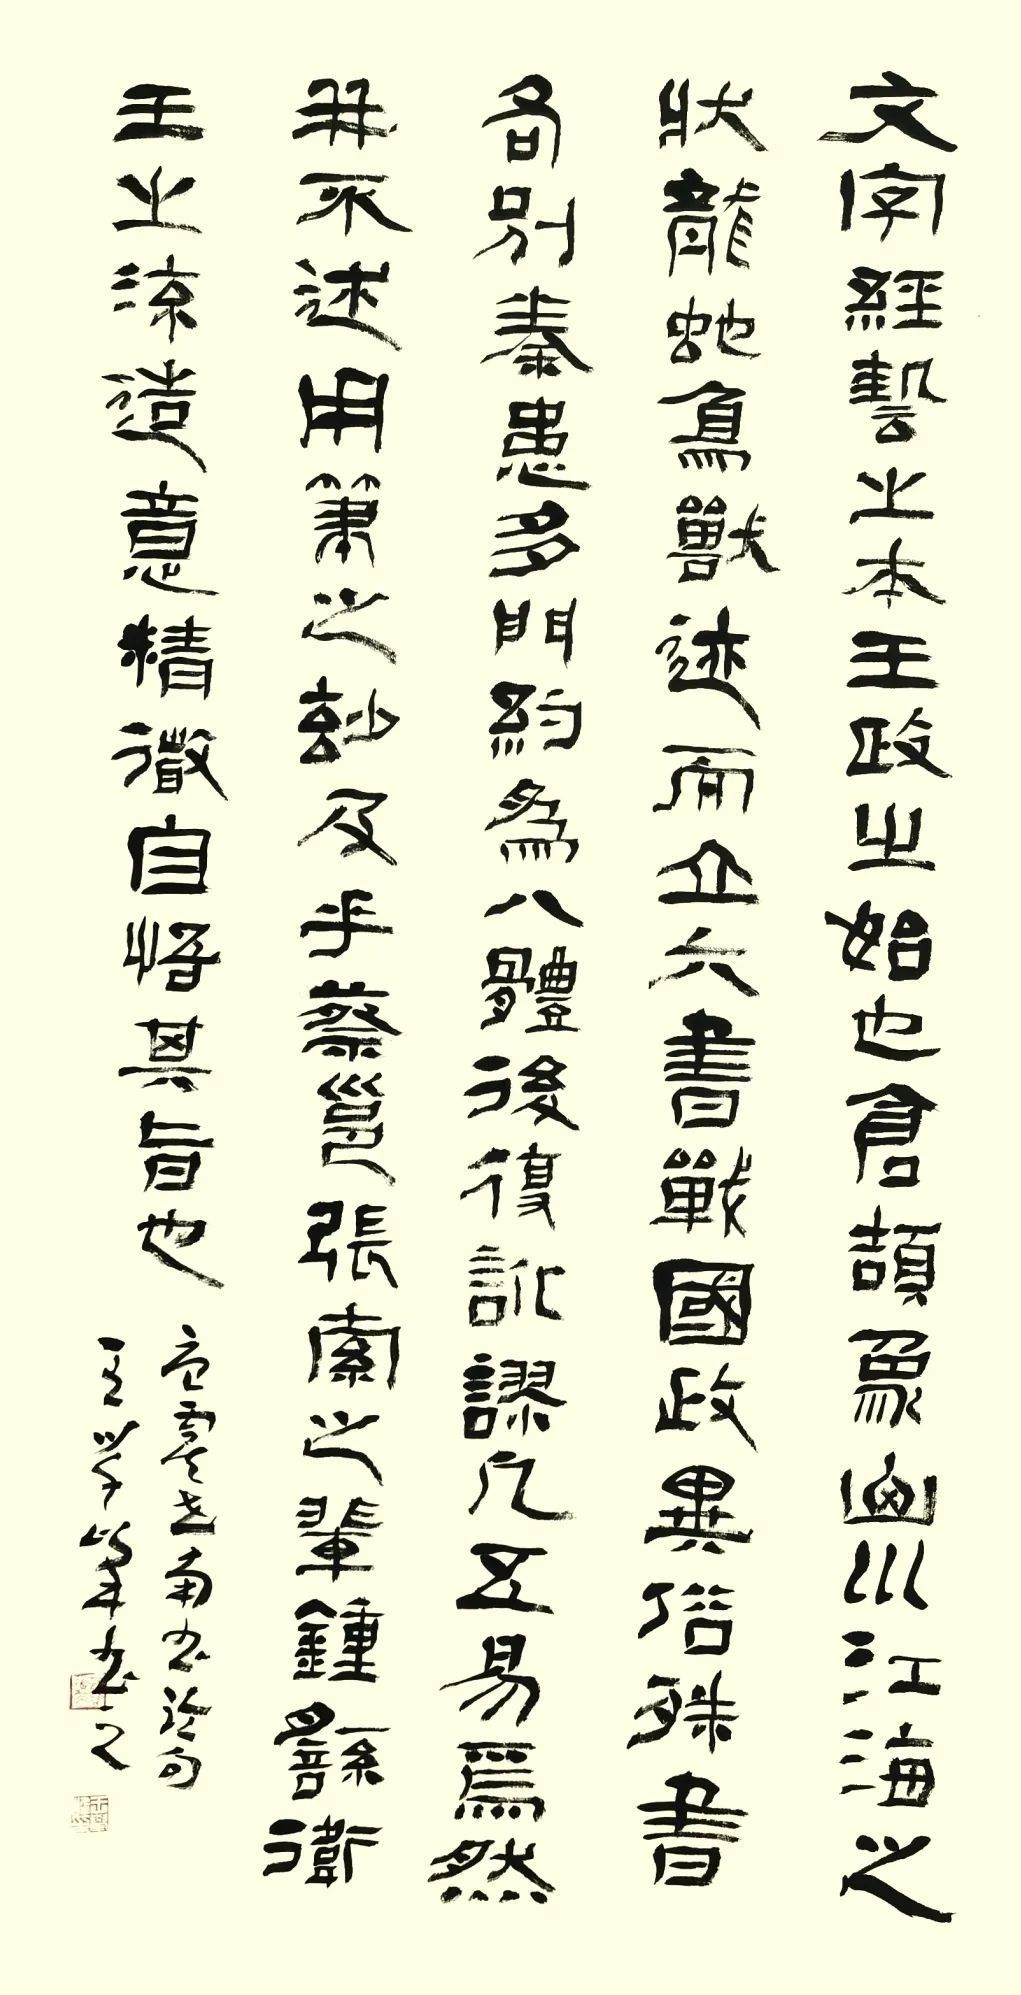 文字經藝之本王政之始也倉頡象山川江海之
狀龍蛇鳥獸迹而立六書戰國政異俗殊書
各別秦患多門約爲八體後復訛謬凡五易焉然
並不述用筆之妙及乎蔡邕張索之輩鍾繇衛
王之流造意精微自悟其旨也
唐虞世南書論句
王學峰書之